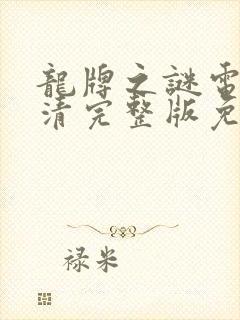 龍牌之謎電
清完整版免
禄米